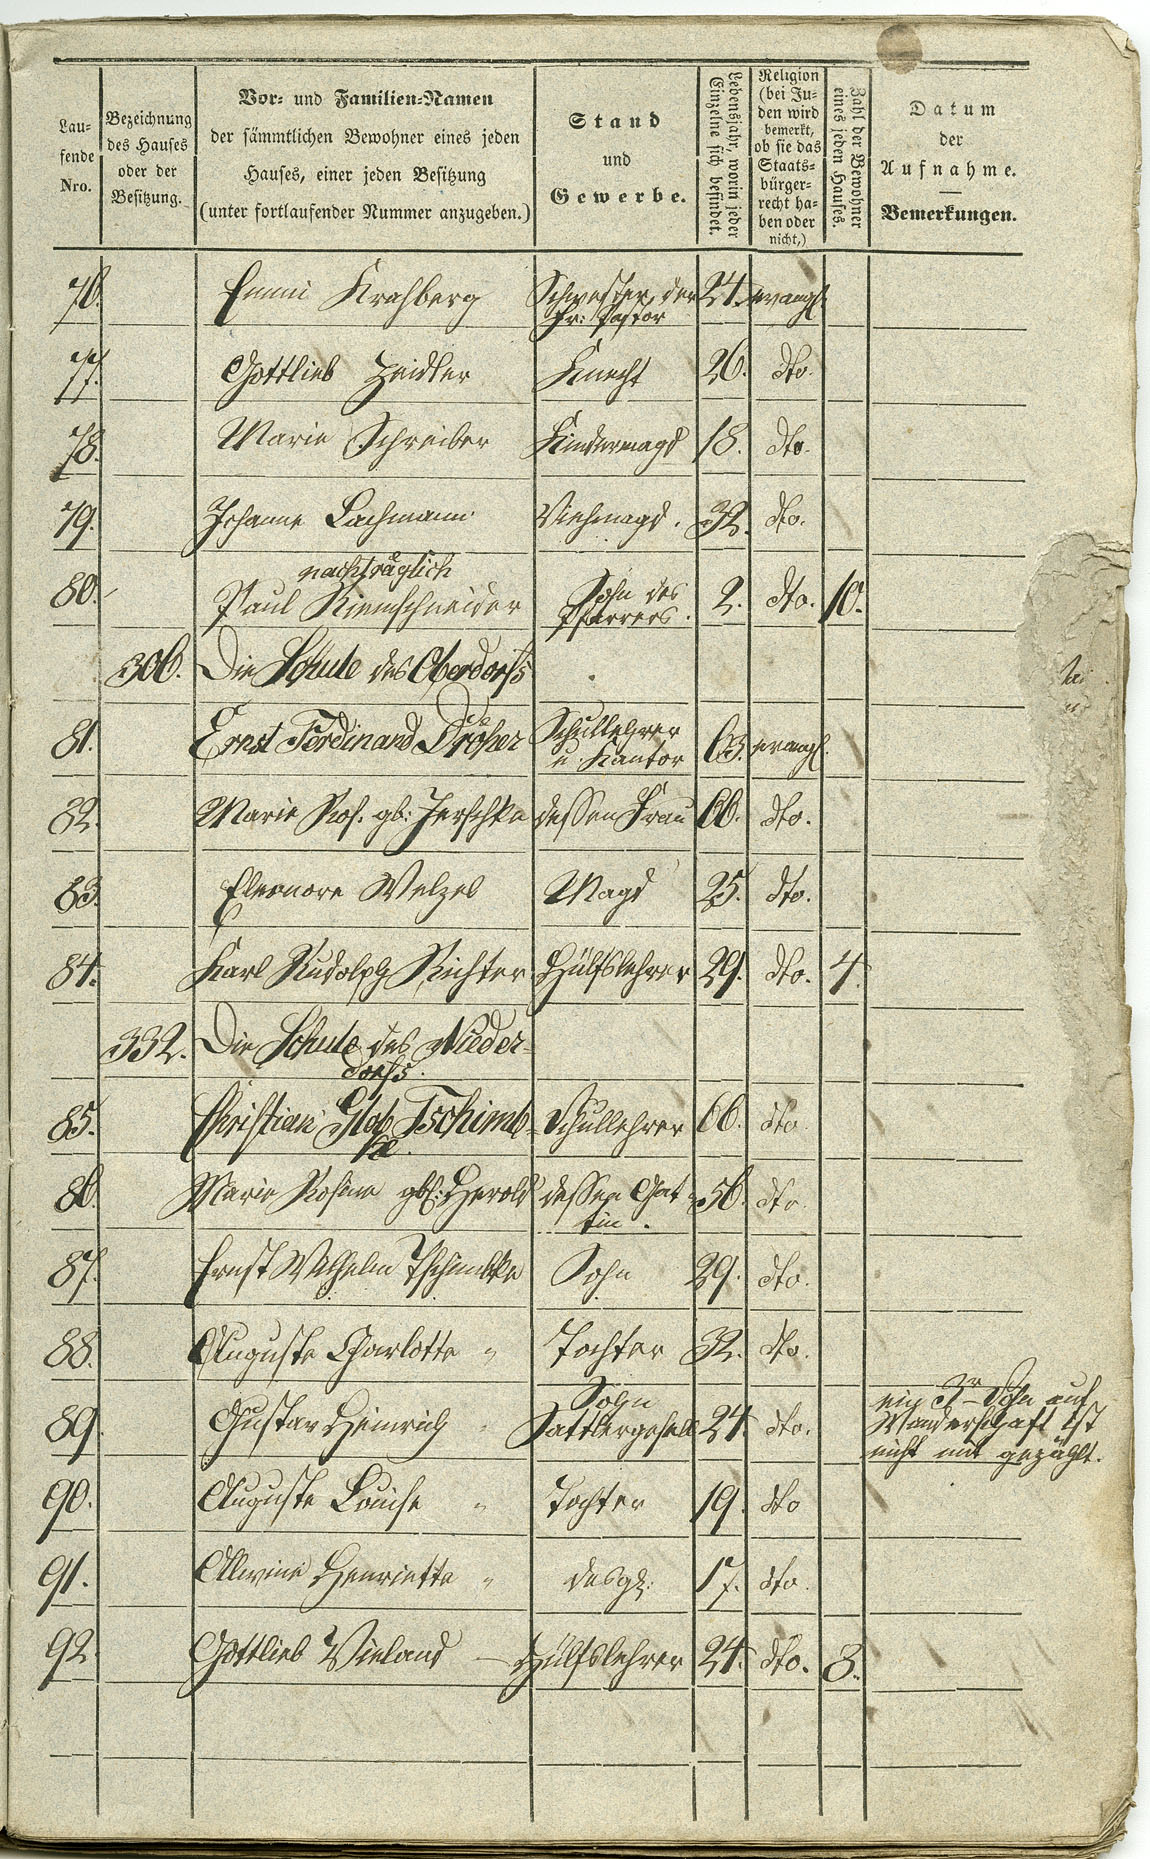 Laufende Nro.
Bezeichnung des Hauses oder der Besitzung.
Vor- und Familien-Namen
der sämmtlichen Bewohner eines jeden
Hauses, einer jeden Besitzung
(unter fortlaufender Nummer anzugeben.)
Stand
und
Gewerbe.
Lebensjahr, worin jeder Einzelne sich befindet.
Religion (bei Juden wird bemerkt, ob sie das Staatsbürgerrecht haben oder nicht,)
Zahl der Bewohner eines jeden Hauses.
Datum
der
Aufnahme.
Bemerkungen.
76. Emmi Krahberg Schwester der Fr: Pastor 24. evangl.
77. Gottlieb Zeidler Knecht 26. dto.
78. Marie Schreiber Kindermagd 18. dto.
79. Johanne Lachmann Viehmagd. 32. dto.
nachträglich
80. Paul Riemschneider Sohn des Pfarrers. 2. dto. 10.
306. Die Schule des Oberdorfs
81. Ernst Ferdinand Dröher Schullehrer u. Kantor 63. evangl.
82. Marie Ros. gb: Jerschke dessen Frau 66. dto.
83. Eleonore Welzel Magd 25. dto.
84. Karl Rudolph Richter Hülfslehrer 29. dto. 4.
332. Die Schule des Nieder-
dorfs.
85. Christian Glob Tschimb-
ke. Schullehrer 66. dto.
86. Marie Rosine gb: Herold dessen Gat-
tin. 56. dto.
87. Ernst Wilhelm Tschimbke Sohn 29. dto.
88. Auguste Charlotte " Tochter 32. dto.
89. Gustav Heinrich " Sohn Sattlergesell 24. dto. ein 3r Sohn auf
Wanderschaft ist
nicht mit gezählt.
90. Auguste Louise " Tochter 19. dto
91. Allwine Henriette " desgl: 17. dto.
92. Gottlieb Wieland Hülfslehrer 24. dto. 8.